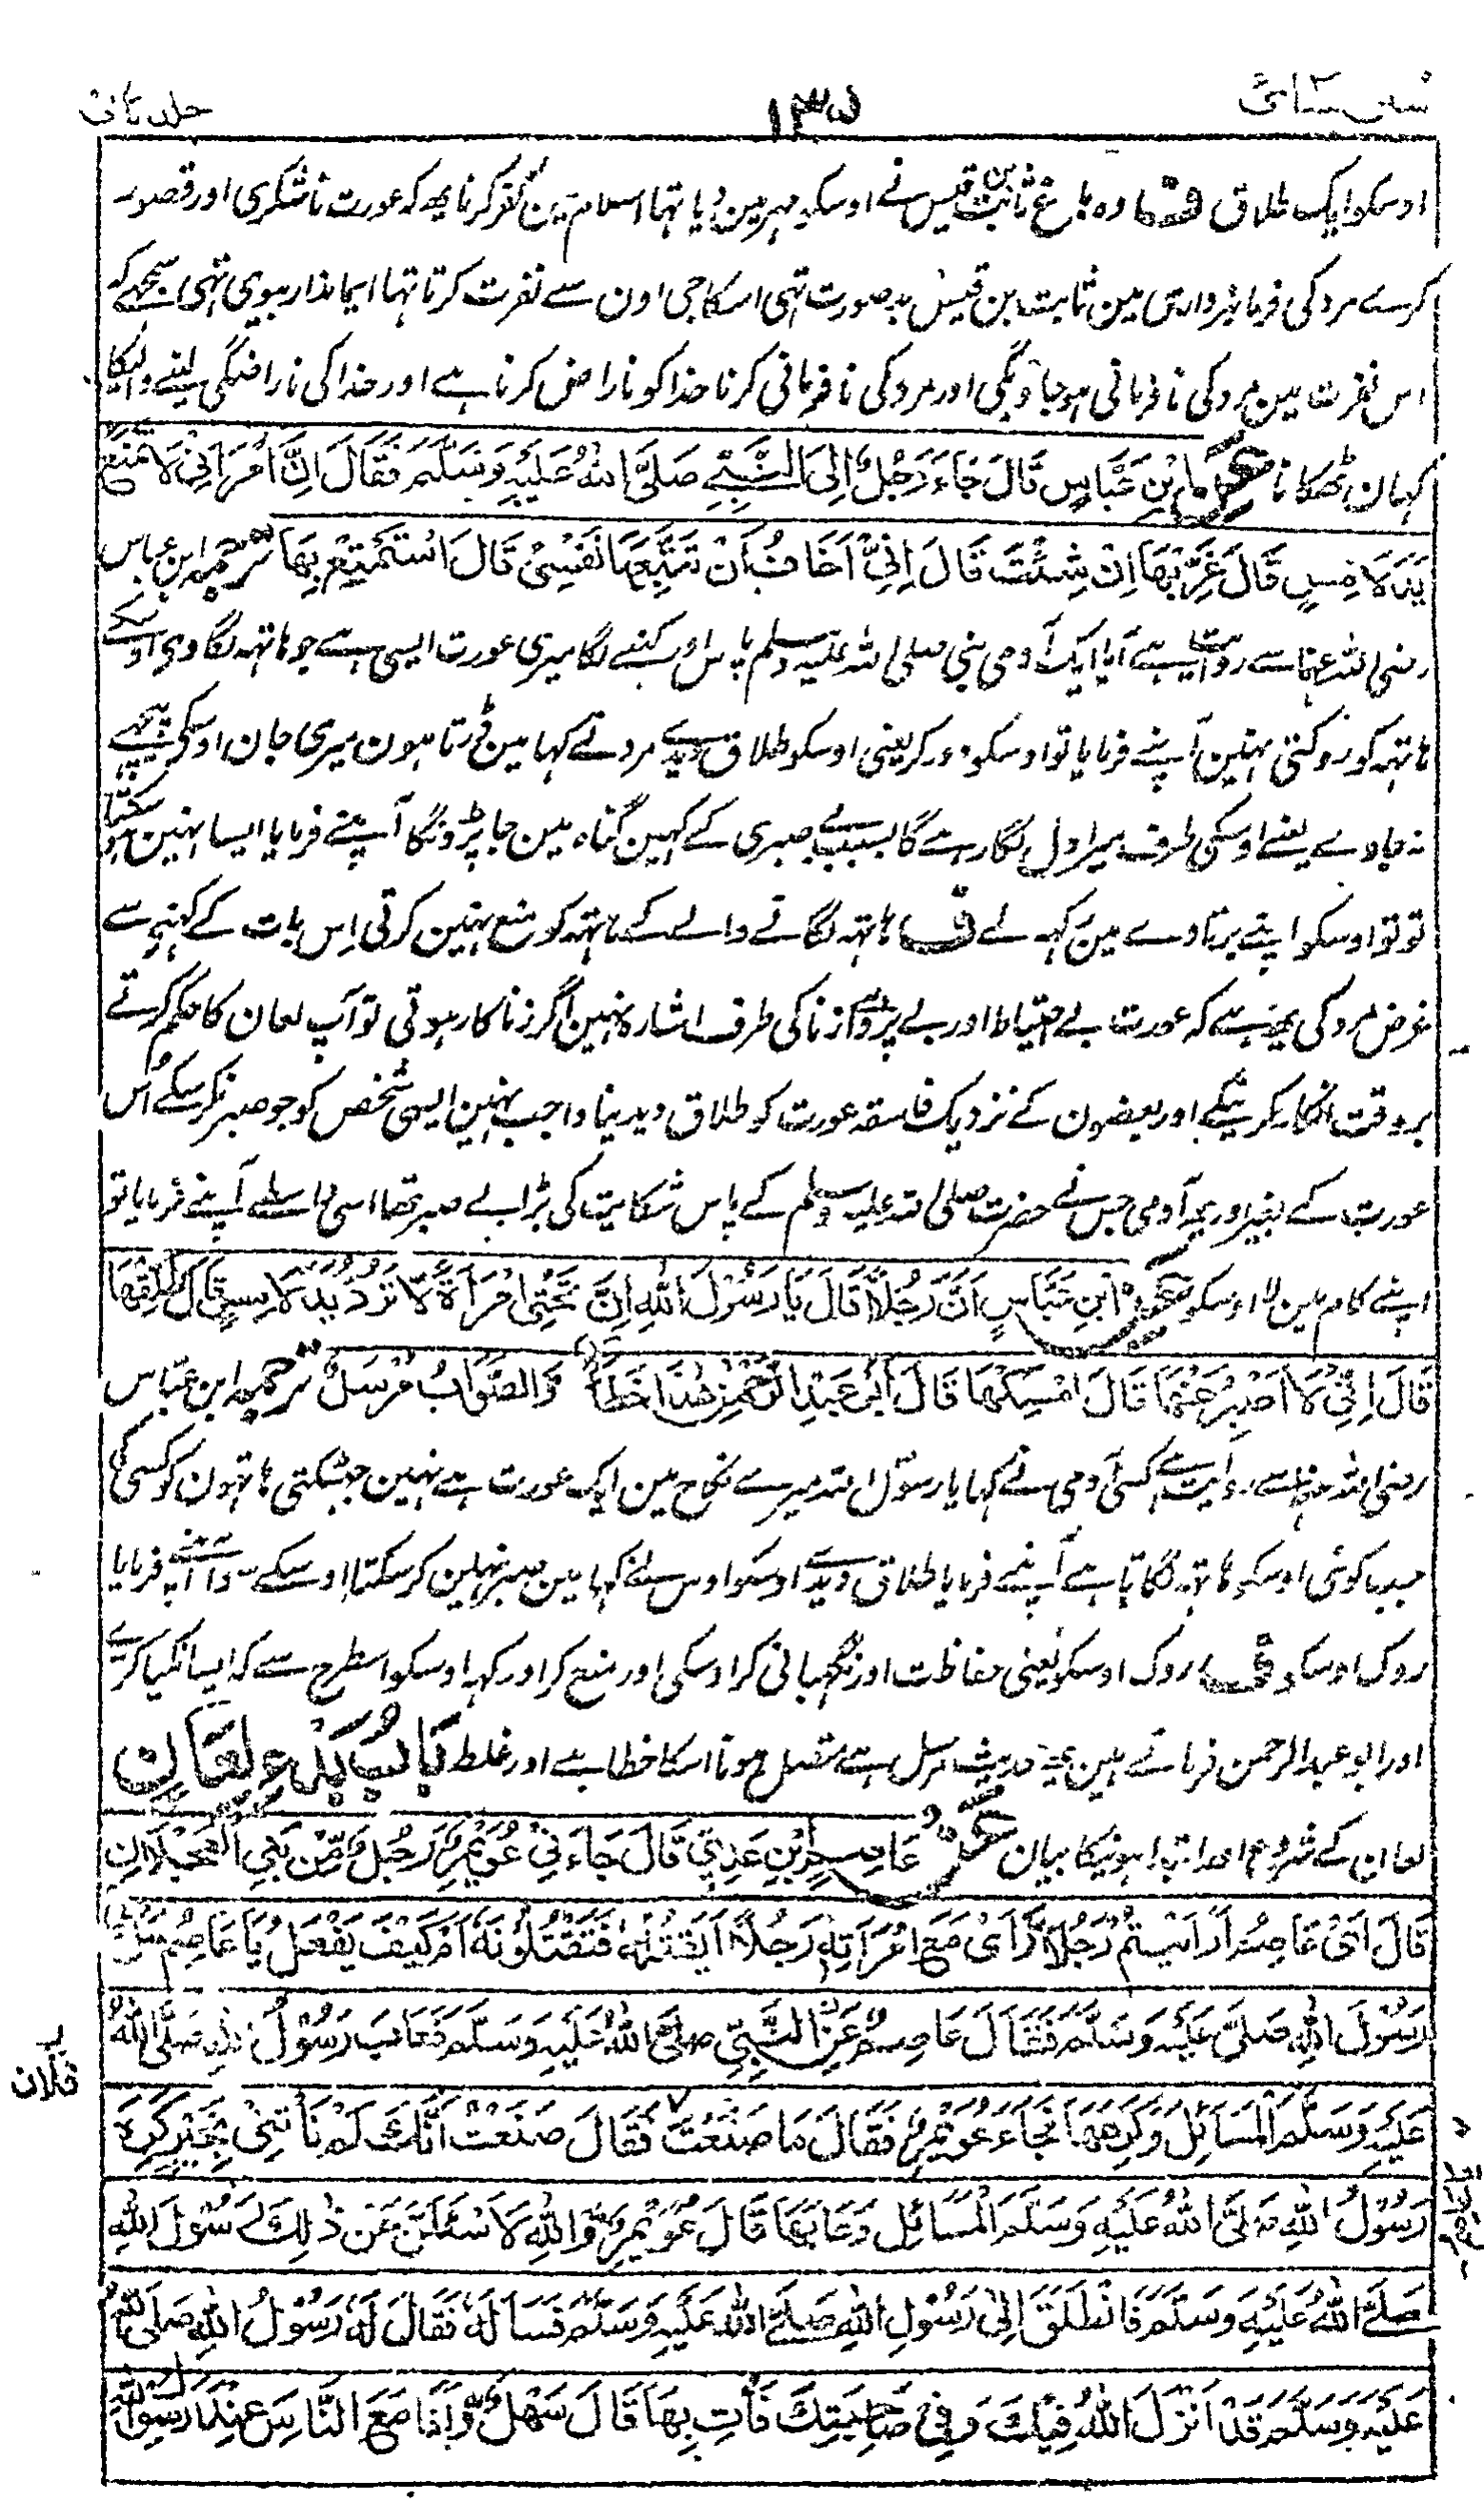 سنن نسائی ۱۳۵ جلد ثانی
اوسکو ایک طلاق ف وہ باغ ثابت بن قیس نے اوسکو مہر مین دیا تہا اسلام مین کفر کرنا یہ کہ عورت ناشکری اور قصور
کرے مرد کی فرمانبرداری مین ثابت بن قیس بد صورت تہی اسکا جی اون سے نفرت کرتا تہا ایماندار بیوی تہی سمجھے کہ
اس نفرت مین مرد کی نافرمانی ہو جاوگی اور مرد کی نافرمانی کرنا خدا کو ناراض کرنا ہے اور خدا کی ناراضگی لینے والیکا
کہان ٹھکانا عَنِ ابْنِ عَبَّاسٍ قَالَ جَاءَ رَجُلٌ اِلَی النَّبِیِّ صَلَّی اللہُ عَلَیْہِ وَسَلَّمَ فَقَالَ اِنَّ امْرَاَتِیْ لَا تَمْنَعُ
یَدَ لَامِسٍ قَالَ غَرِّبْهَا اِنْ شِئْتَ قَالَ اِنِّیْ اَخَافُ اَنْ تَتَّبِعَهَا نَفْسِیْ قَالَ اسْتَمْتِعْ بِهَا ترجمہ ابن عباس
رضی اللہ عنہما سے روایت ہے آیا ایک آدمی نبی صلی اللہ علیہ وسلم پاس اور کہنے لگا میری عورت ایسی ہے جو ہاتہہ لگاوی اوسکے
ہاتہہ کو روکتی نہین آپنے فرمایا تو اوسکو دور کر یعنی اوسکو طلاق دیدے مرد نے کہا مین ڈرتا ہون میری جان اوسکی پیچہے
نہ جاوے یعنے اوسکی طرف میرا دل لگا رہے گا بسبب بے صبری کے کہین گناہ مین جا پڑونگا آپنے فرمایا ایسا نہین ہو سکتا
تو تو اوسکو اپنے برتاوے مین رکہہ لے ف ہاتہہ لگانے والے کے ہاتہہ کو منع نہین کرتی اِس بات کے کہنے سے
غرض مرد کی یہ ہے کہ عورت بے احتیاط اور بے پروا ہے زنا کی طرف اشارہ نہین اگر زنا کار ہوتی تو آپ لعان کا حکم کرتے
بروقت انکار کرنیکے اور بعضون کے نزدیک فاسقہ عورت کو طلاق دیدینا واجب نہین ایسی شخص کو جو صبر نکر سکے اُس
عورت کے بغیر اور یہ آدمی جس نے حضرت صلی اللہ علیہ وسلم کے پاس شکایت کی بڑا بے صبر تھا اسی واسطے آپنے فرمایا تو
اپنے کام مین لا اوسکو عَنِ ابْنِ عَبَّاسٍ اَنَّ رَجُلًا قَالَ یَا رَسُوْلَ اللہِ اِنَّ تَحْتِیْ امْرَاَةً لَا تَرُدُّ یَدَ لَامِسٍ قَالَ طَلِّقْهَا
قَالَ اِنِّیْ لَا اَصْبِرُ عَنْهَا قَالَ اَمْسِکْهَا قَالَ اَبُوْ عَبْدِ الرَّحْمٰنِ هٰذَا خَطَأٌ وَالصَّوَابُ مُرْسَلٌ ترجمہ ابن عباس
رضی اللہ عنہما سے روایت ہے کسی آدمی نے کہا یا رسول اللہ میرے نکاح مین ایک عورت ہے نہین جھٹکتی ہاتہون کو کسی کی
جب کوئی اوسکو ہاتہہ لگاتا ہے آپنے فرمایا طلاق دیدے اوسکو اوس نے کہا مین صبر نہین کر سکتا اوسکے سوا آپنے فرمایا
روک اوسکو ف روک اوسکو یعنی حفاظت اور نگہبانی کر اوسکی اور منع کر اور کہہ اوسکو اسطرح سے کہ ایسا نکیا کرے
اور ابو عبد الرحمن فرماتے ہین یہ حدیث مرسل ہے متصل ہونا اسکا خطا ہے اور غلط بَابُ بَدْءِ لِعَانٍ
لعان کے شروع اور ابتدا ہونیکا بیان عَنْ عَاصِمِ بْنِ عَدِیٍّ قَالَ جَاءَنِیْ عُوَیْمِرٌ رَجُلٌ مِّنْ بَنِی الْعَجْلَانِ
قَالَ اَیْ عَاصِمُ اَرَاَیْتُمْ رَجُلًا رَاٰی مَعَ امْرَاَتِهٖ رَجُلًا اَیَقْتُلُهٗ فَتَقْتُلُوْنَهٗ اَمْ کَیْفَ یَفْعَلُ یَا عَاصِمُ سَلْ لِیْ
رَسُوْلَ اللہِ صَلَّی عَلَیْہِ وَسَلَّمَ فَقَالَ عَاصِمٌ عَنِ النَّبِیِّ صَلَّی اللہُ عَلَیْہِ وَسَلَّمَ فَعَابَ رَسُوْلُ اللہِ صَلَّی اللہُ
عَلَیْہِ وَسَلَّمَ الْمَسَائِلَ وَکَرِهَهَا فَجَاءَ عُوَیْمِرٌ فَقَالَ مَا صَنَعْتَ فَقَالَ صَنَعْتُ اَنَّکَ لَمْ تَاْتِنِیْ بِخَیْرٍ کَرِهَ
رَسُوْلُ اللہِ صَلَّی اللہُ عَلَیْہِ وَسَلَّمَ الْمَسَائِلَ وَعَابَهَا قَالَ عُوَیْمِرٌ وَاللہِ لَاَسْئَلَنَّ عَنْ ذٰلِکَ رَسُوْلَ اللہِ
صَلَّی اللہُ عَلَیْہِ وَسَلَّمَ فَانْطَلَقَ اِلٰی رَسُوْلِ اللہِ صَلَّی اللہُ عَلَیْہِ وَسَلَّمَ فَسَاَلَهٗ فَقَالَ لَهٗ رَسُوْلُ اللہِ صَلَّی اللہُ
عَلَیْہِ وَسَلَّمَ قَدْ اَنْزَلَ اللہُ فِیْکَ وَفِیْ صَاحِبَتِکَ فَاْتِ بِهَا قَالَ سَهْلٌ وَاَنَا مَعَ النَّاسِ عِنْدَ رَسُوْلِ اللہِ